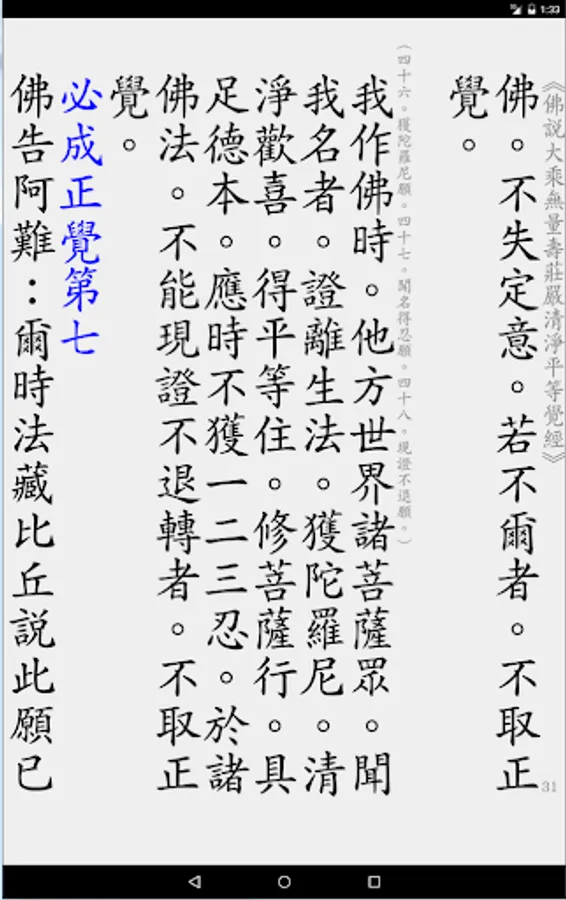 1:33
《佛説大乘無量壽莊嚴清淨平等覺經》
佛。不失定意。若不爾者。不取正
覺。
(四十六。獲陀羅尼願。四十七。聞名得忍願。四十八。現證不退願。)
我作佛時。他方世界諸菩薩眾。聞
我名者。證離生法。獲陀羅尼。清
淨歡喜。得平等住。修菩薩行。具
足德本。應時不獲一二三忍。於諸
佛法。不能現證不退轉者。不取正
覺。
必成正覺第七
佛告阿難：爾時法藏比丘説此願已
31